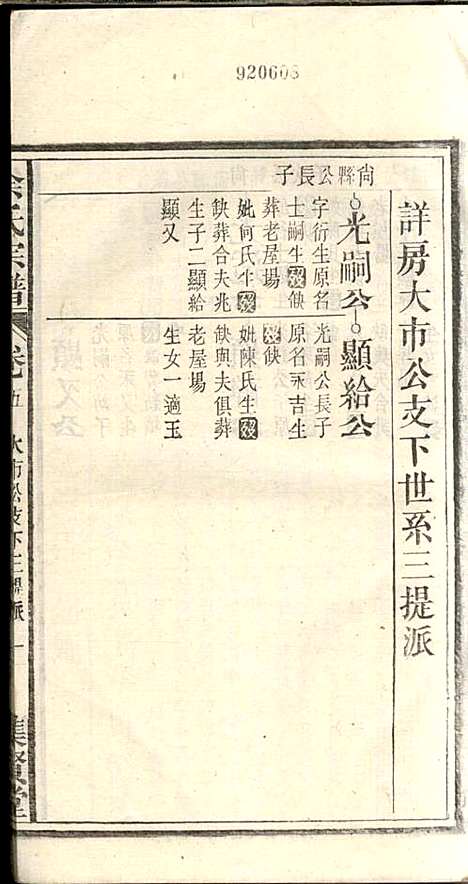 920603
詳房大市公支下世系三提派
尙縣公長子
光嗣公
顯給公
字衍生原名
士嗣生歿缺
葬老屋場
妣何氏生歿
缺葬合夫兆
生子二顯給
顯又
光嗣公長子
原名永吉生
歿缺
妣陳氏生歿
缺與夫俱葬
老屋場
生女一適王
氏宗譜
卷五
大市公支下三提派
一
集賢堂